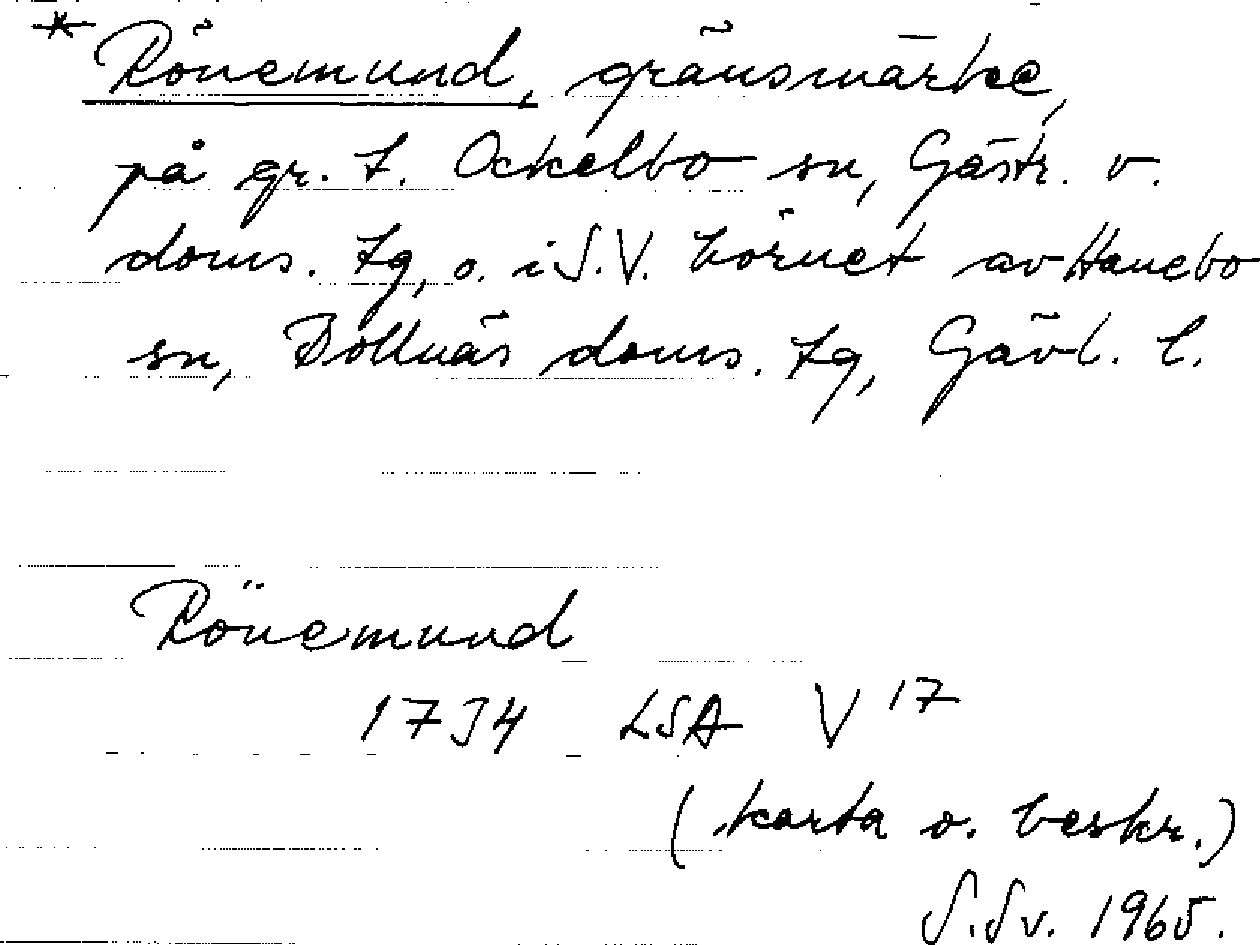 * Rönemund, gränsmärke,
på gr. t. Ockelbo sn, Gästr. v.
doms. tg, o. i S.V. hörnet av Hanebo
sn, Bollnäs doms. tg, Gävl. l.
Rönemund
1734 LSA V 17
(karta o. beskr.)
S.Sv. 1965.